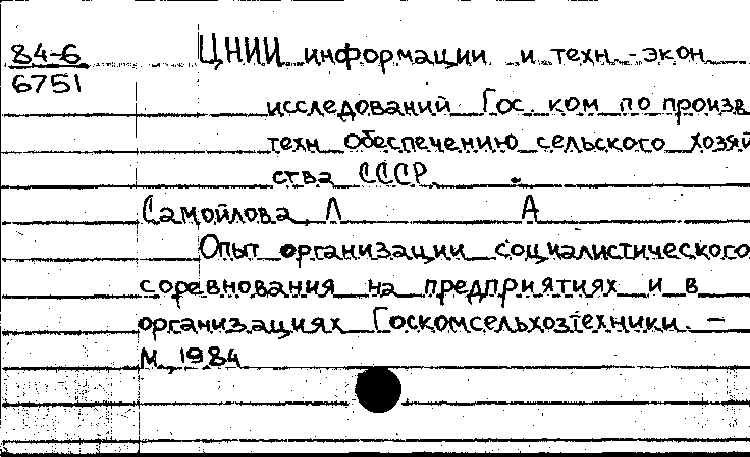 84-6
6751
ЦНИИ информации и техн.-экон
исследований Гос. ком по произв
техн обеспечению сельского хозяй
ства СССР.
Самойлова Л А
Опыт организации социалистического
соревнования на предприятиях и в
организациях Госкомсельхозтехники. –
М, 1984